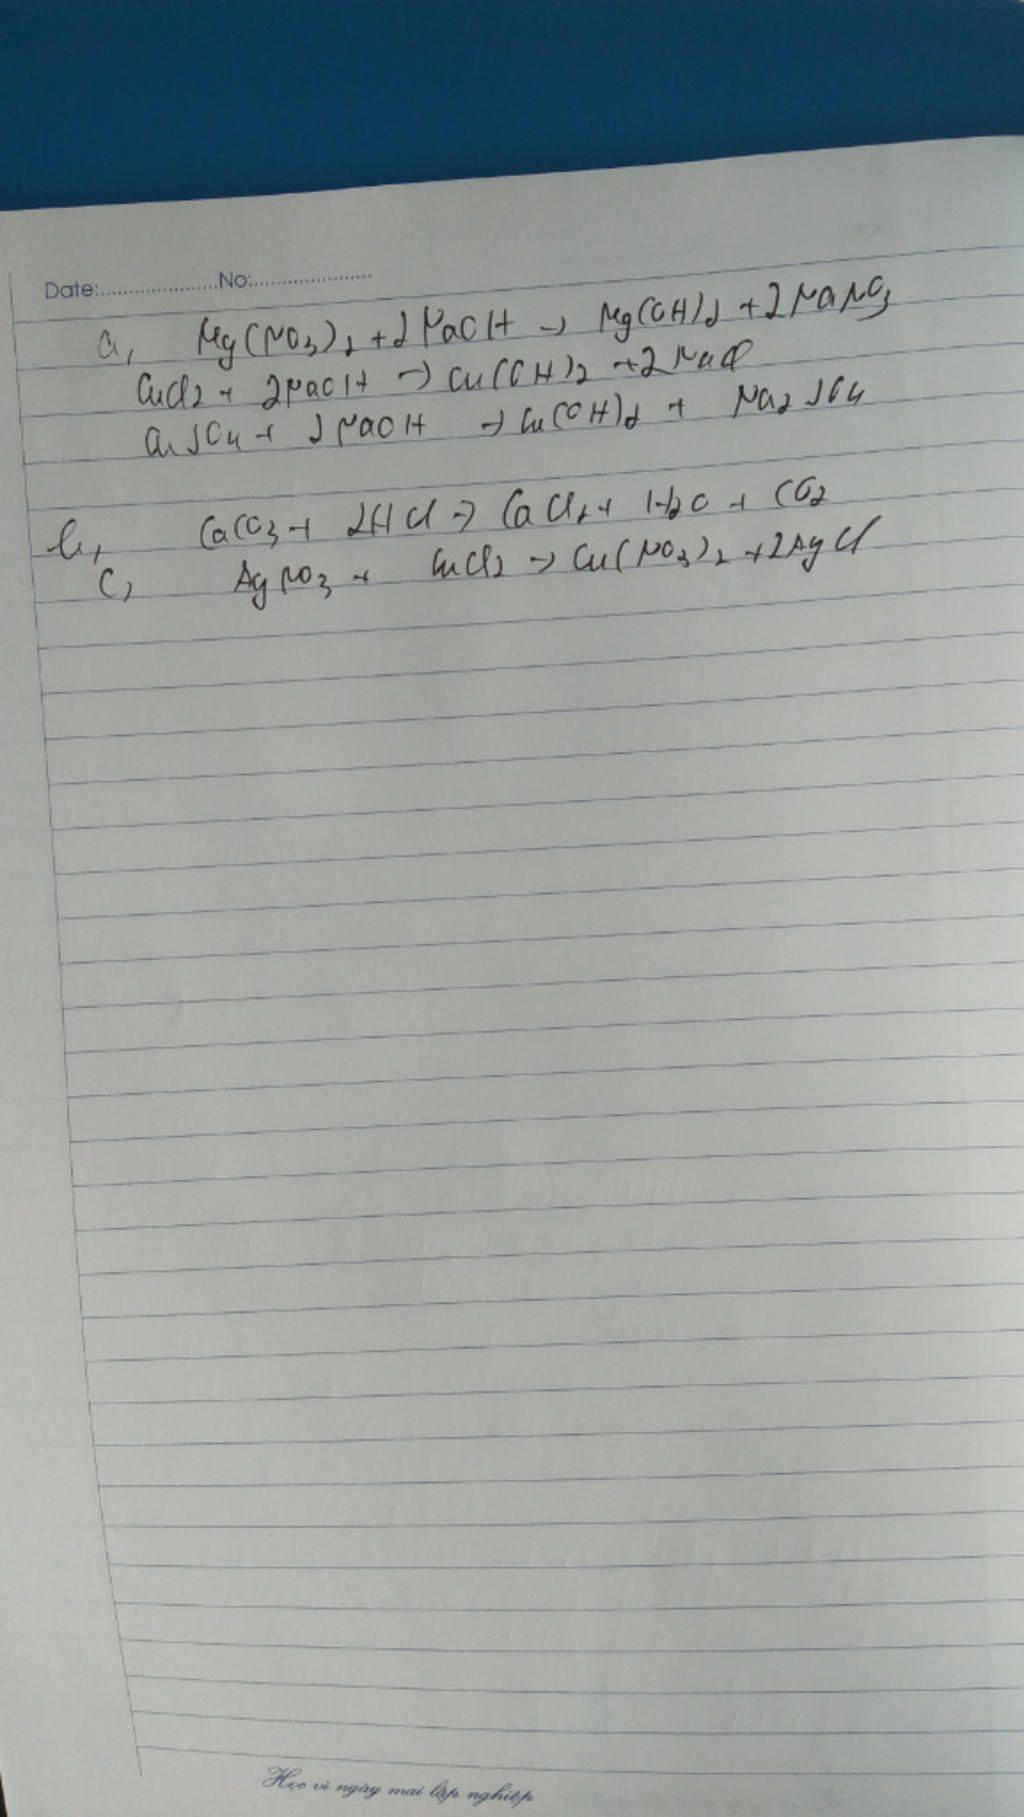 Date:......................No:......................
a, Mg(NO3)2 + 2NaOH → Mg(OH)2 + 2NaNO3
CuCl2 + 2NaOH → Cu(OH)2 + 2NaCl
CuSO4 + 2NaOH → Cu(OH)2 + Na2SO4
b, CaCO3 + 2HCl → CaCl2 + H2O + CO2
c, AgNO3 + CuCl2 → Cu(NO3)2 + 2AgCl
Học vì ngày mai lập nghiệp